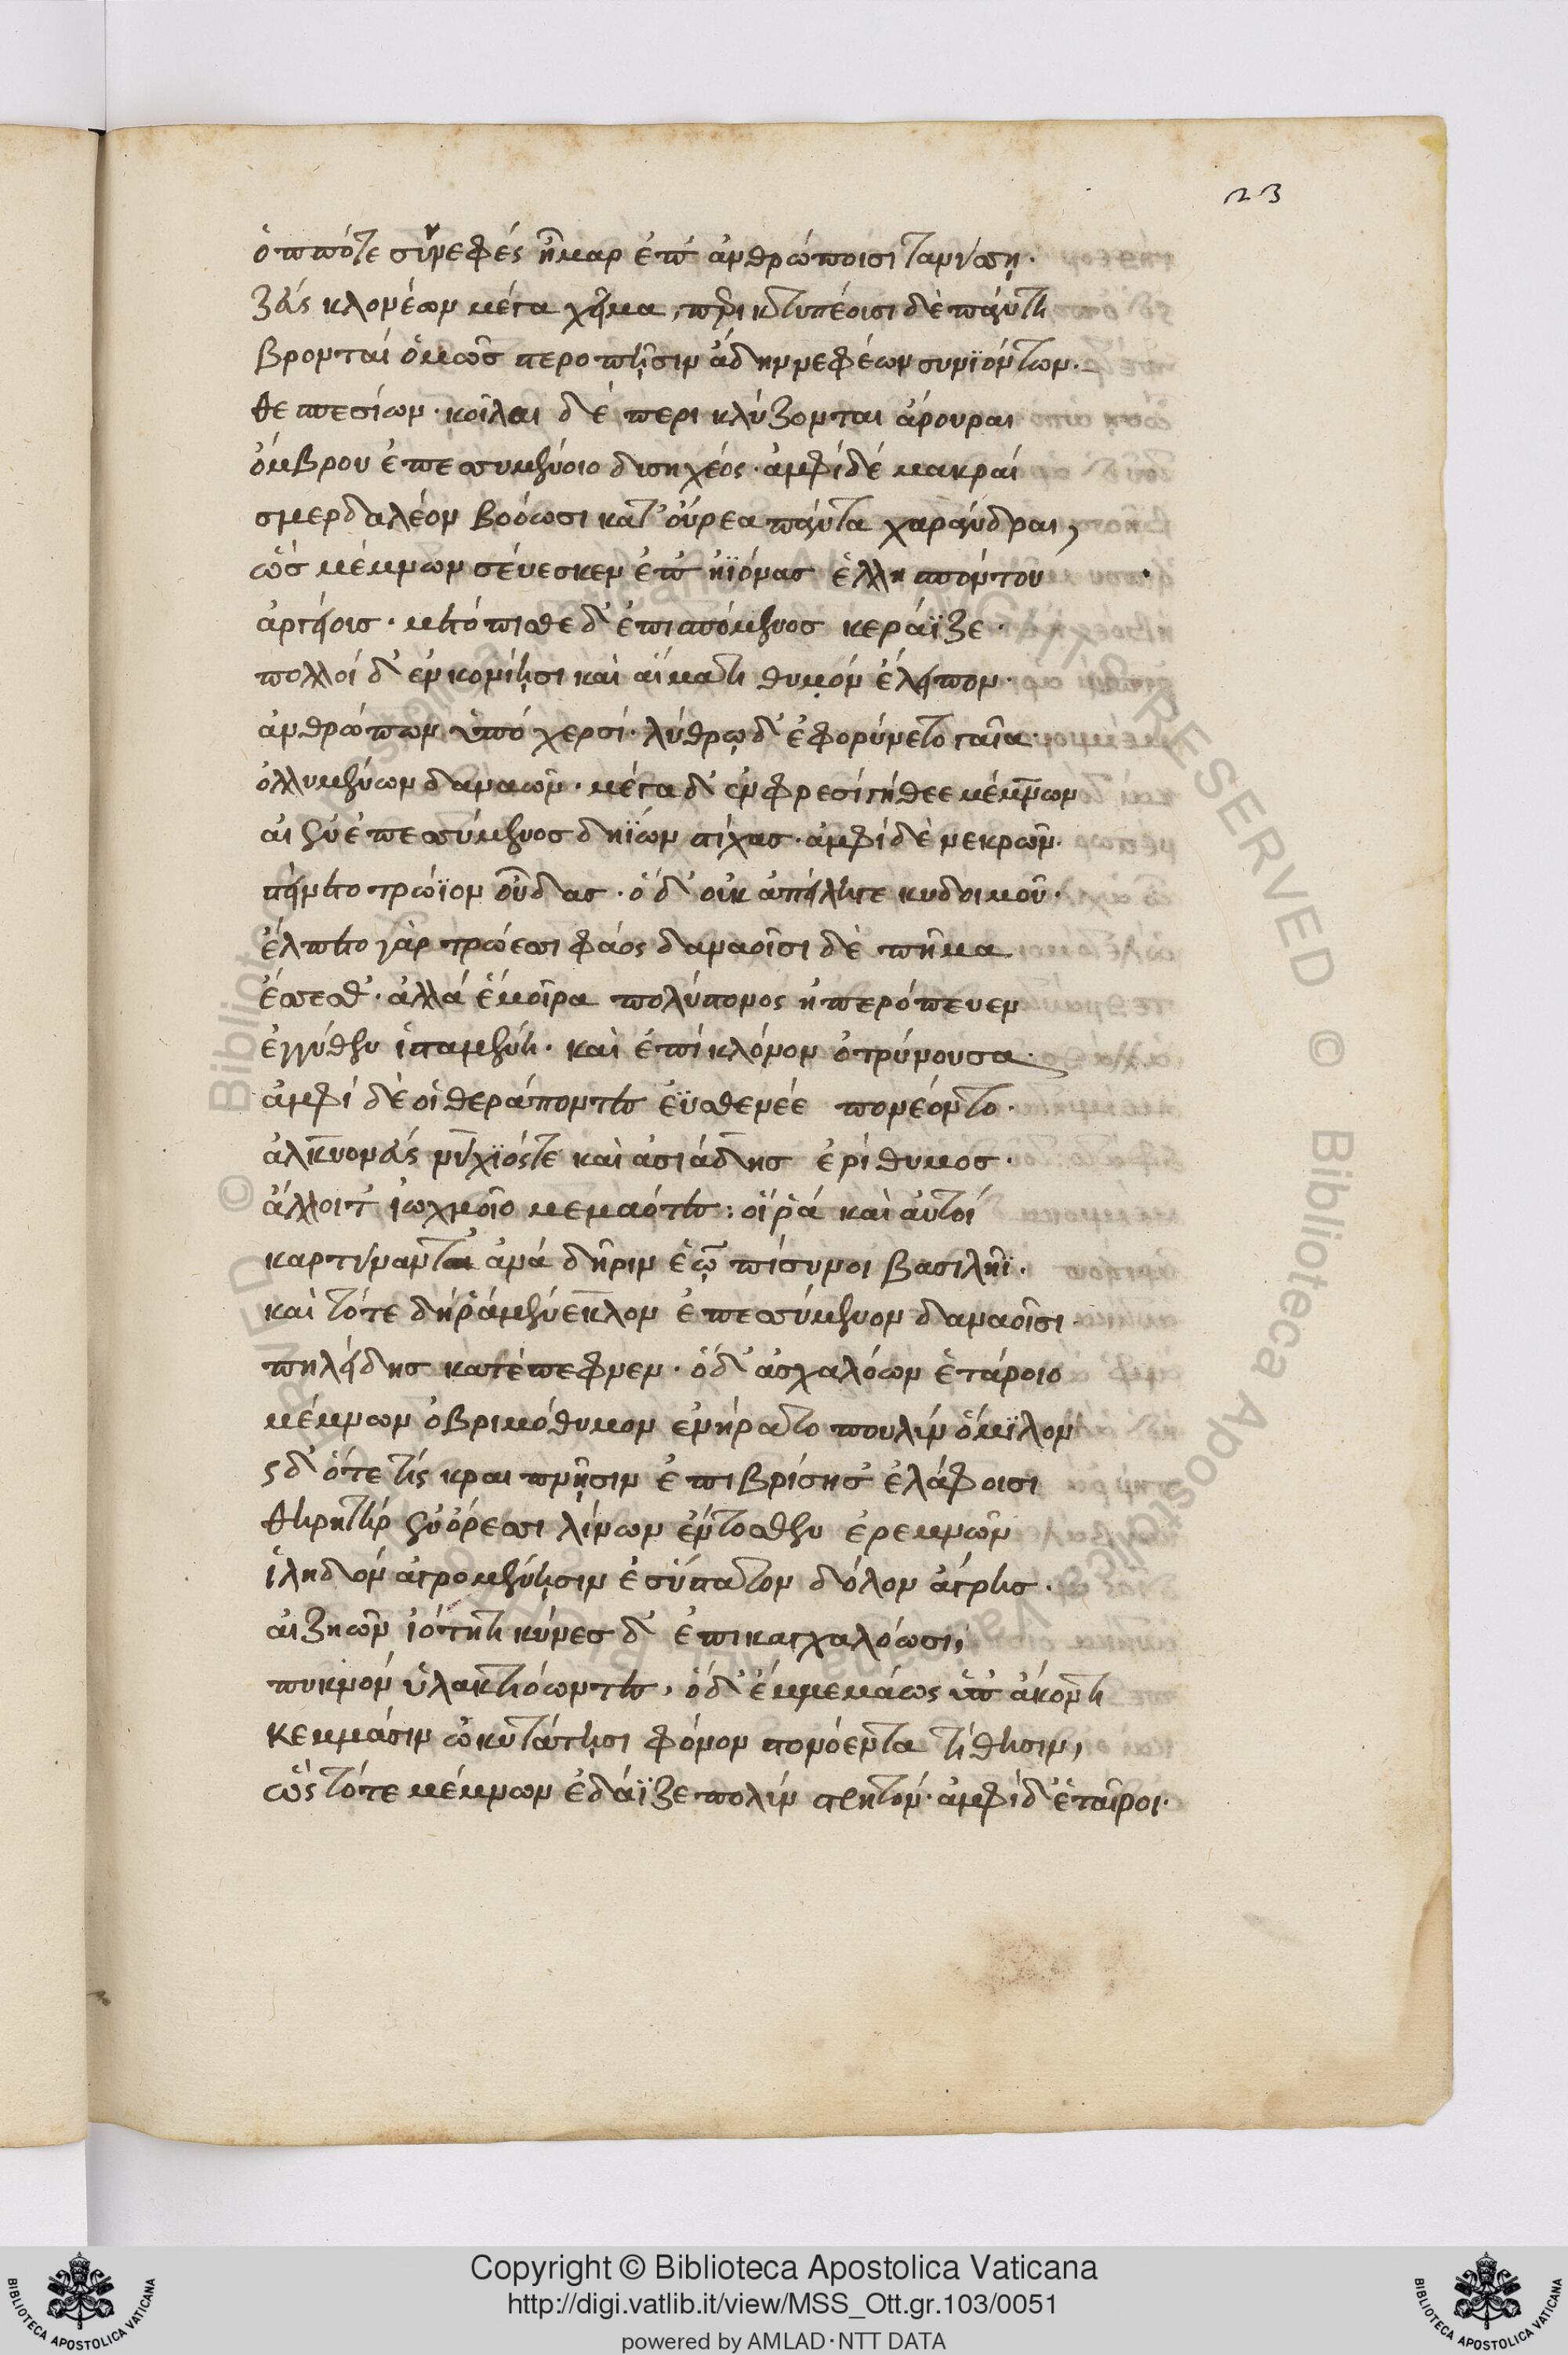 23
ὁππότε συννεφές ἦμαρ ἐπ' ἀνθρώποισι τανύσση.
ζεύς κλονέων μέγα χεῖμα, περικτυπέοισι δὲ πάντη
βρονταί ὁμῶς περοπῆσιν ἄδην νεφέων συνϊόντων.
θεσπεσίων. κοῖλαι δὲ περι κλύζονται ἄρουραι
ὄμβρου ἐπεσσυμένοιο δισηχέος. ἀμφί δέ μακραί
σμερδαλέον βοόωσι κατ' οὔρεα πάντα χαράνδραι,
ὥς μέμνων σέυεσκεν ἐπ' ἠϊόνας ἑλλησπόντου
ἀργείοις. μετόπισθε δ' ἐπισπόμενος κεράϊζε.
πολλοί δ' ἐν κονίησι καὶ αἵματι θυμόν ἔλειπον.
ἀνθρώπων ὑπό χερσί. λύθρω δ' ἐφορύνετο γαῖα.
ὀλλυμένων δαναῶν. μέγα δ' ἐν φρεσί γήθεε μέμνων
αἰεν ἐπεσσύμενος δηΐων στίχας. ἀμφί δὲ νεκρῶν.
πείνετο τρώϊον οὖδας. ὁ δ' οὐκ ἀπέληγε κυδοιμοῦ.
ἔλπετο γὰρ τρώεσσι φάος δαναοῖσι δὲ πῆμα
ἔσσεσθ'. ἀλλά ἑ μοῖρα πολύστονος ἠπερόπευεν
ἐγγύθεν ἱσταμένη. καὶ ἐπί κλόνον ὀτρύνουσα.
ἀμφί δὲ οἱ θεράποντες ἐϋσθενέε πονέοντο.
ἀλκυονεύς νυχϊόςτε καὶ ἀσιάδης ἐρίθυμος.
ἄλλοιτ' ἰωχμοῖο μεμαότες: οἵ ῥά καὶ αὐτοί
καρτύναντο ἀνά δῆριν ἑῶ πίσυνοι βασιλῆϊ.
καὶ τότε δή ῥά μὲν ἔκλον ἐπεσσύμενον δαναοῖσι
πηλείδης κατέπεφνεν. ὁ δ' ἀσχαλόων ἑτάροιο
μέμνων ὀβριμόθυμον ἐνήρατο πουλύν ὅμϊλον
ς δ' ὅτε τίς κραιπνῆσιν ἐπιβρίσησ' ἐλάφοισι
θηρητήρ ἐν ὄρεσσι λίνων ἔντοσθεν ἐρεμνῶν
ἰληδόν ἀγρομένησιν ἐς ὕστατον δόλον ἄγρης.
αἰζηῶν ἰότητι κύνες δ' ἐπικαγχαλόωσι,
πυκνόν ὑλακτιόωντες, ὁ δ' ἐμμεμάως ὑπ' ἄκοντι
κεμμάσιν ὠκυτάτησι φόνον στονόεντα τίθησιν,
ὥς τότε μέμνων ἐδάϊζε πολύν στρητόν. ἀμφί δ' ἑταῖροι.
© Biblioteca Apostolica Vaticana ALL RIGHTS RESERVED © Biblioteca Apostolica Vaticana ALL RIGHTS RESERVED
Copyright © Biblioteca Apostolica Vaticana
http://digi.vatlib.it/view/MSS_Ott.gr.103/0051
powered by AMLAD·NTT DATA
BIBLIOTECA APOSTOLICA VATICANA
BIBLIOTECA APOSTOLICA VATICANA